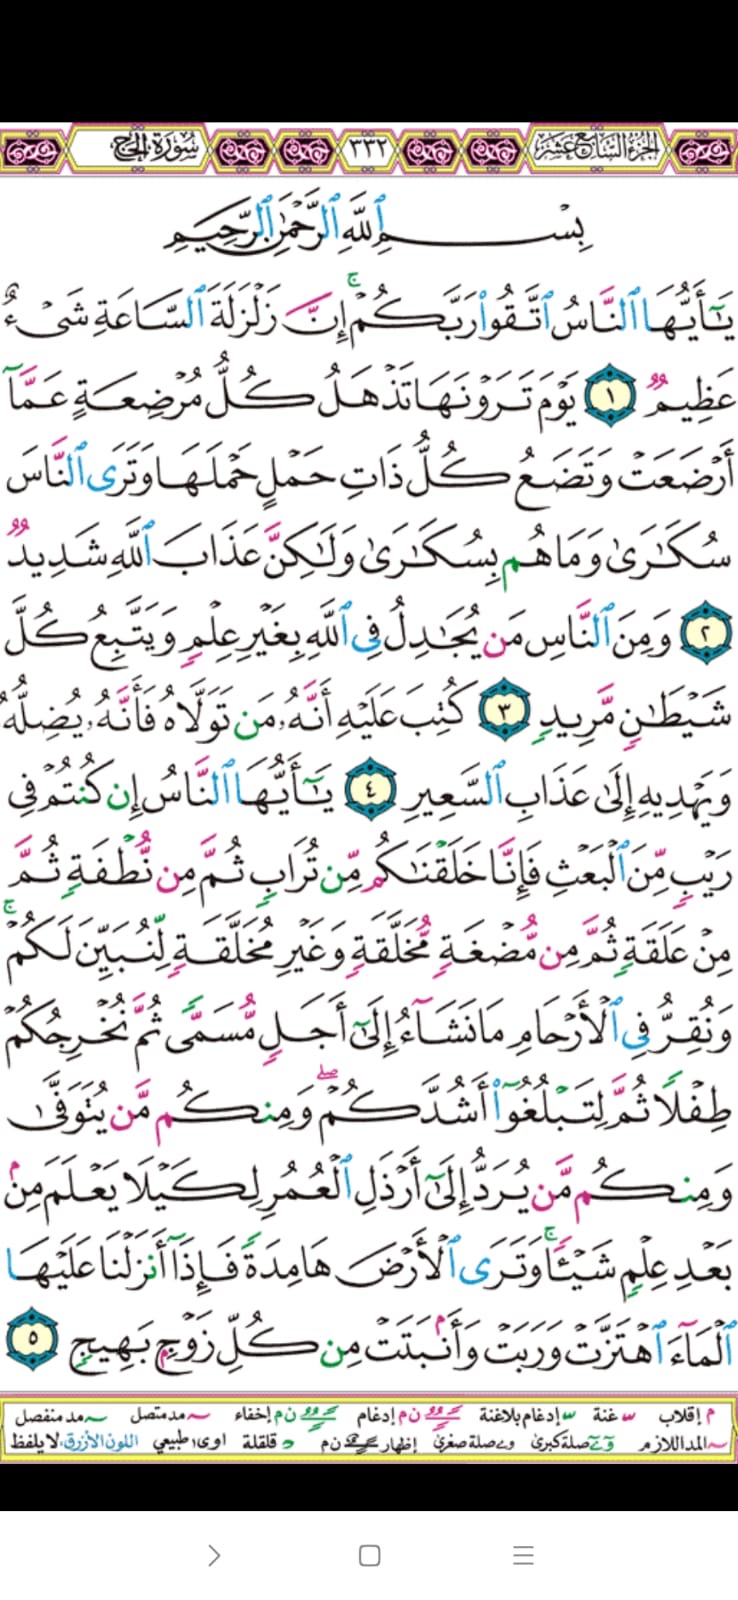 الجزء السابع عشر ٣٣٢ سورة الحج
بِسْمِ ٱللَّهِ ٱلرَّحْمَٰنِ ٱلرَّحِيمِ
يَٰٓأَيُّهَا ٱلنَّاسُ ٱتَّقُوا۟ رَبَّكُمْ ۚ إِنَّ زَلْزَلَةَ ٱلسَّاعَةِ شَىْءٌ
عَظِيمٌ ١ يَوْمَ تَرَوْنَهَا تَذْهَلُ كُلُّ مُرْضِعَةٍ عَمَّآ
أَرْضَعَتْ وَتَضَعُ كُلُّ ذَاتِ حَمْلٍ حَمْلَهَا وَتَرَى ٱلنَّاسَ
سُكَٰرَىٰ وَمَا هُم بِسُكَٰرَىٰ وَلَٰكِنَّ عَذَابَ ٱللَّهِ شَدِيدٌ
٢ وَمِنَ ٱلنَّاسِ مَن يُجَٰدِلُ فِى ٱللَّهِ بِغَيْرِ عِلْمٍ وَيَتَّبِعُ كُلَّ
شَيْطَٰنٍ مَّرِيدٍ ٣ كُتِبَ عَلَيْهِ أَنَّهُۥ مَن تَوَلَّاهُ فَأَنَّهُۥ يُضِلُّهُۥ
وَيَهْدِيهِ إِلَىٰ عَذَابِ ٱلسَّعِيرِ ٤ يَٰٓأَيُّهَا ٱلنَّاسُ إِن كُنتُمْ فِى
رَيْبٍ مِّنَ ٱلْبَعْثِ فَإِنَّا خَلَقْنَٰكُم مِّن تُرَابٍ ثُمَّ مِن نُّطْفَةٍ ثُمَّ
مِنْ عَلَقَةٍ ثُمَّ مِن مُّضْغَةٍ مُّخَلَّقَةٍ وَغَيْرِ مُخَلَّقَةٍ لِّنُبَيِّنَ لَكُمْ ۚ
وَنُقِرُّ فِى ٱلْأَرْحَامِ مَا نَشَآءُ إِلَىٰٓ أَجَلٍ مُّسَمًّى ثُمَّ نُخْرِجُكُمْ
طِفْلًا ثُمَّ لِتَبْلُغُوٓا۟ أَشُدَّكُمْ ۖ وَمِنكُم مَّن يُتَوَفَّىٰ
وَمِنكُم مَّن يُرَدُّ إِلَىٰٓ أَرْذَلِ ٱلْعُمُرِ لِكَيْلَا يَعْلَمَ مِنۢ
بَعْدِ عِلْمٍ شَيْـًٔا ۚ وَتَرَى ٱلْأَرْضَ هَامِدَةً فَإِذَآ أَنزَلْنَا عَلَيْهَا
ٱلْمَآءَ ٱهْتَزَّتْ وَرَبَتْ وَأَنۢبَتَتْ مِن كُلِّ زَوْجٍۭ بَهِيجٍ ٥
م إقلاب غنة إدغام بلاغنة ن م إدغام ن م إخفاء مد متصل مد منفصل
المد اللازم صلة كبرى صلة صغرى إظهار ن م قلقلة اوى طبيعي اللون الأزرق، لا يلفظ